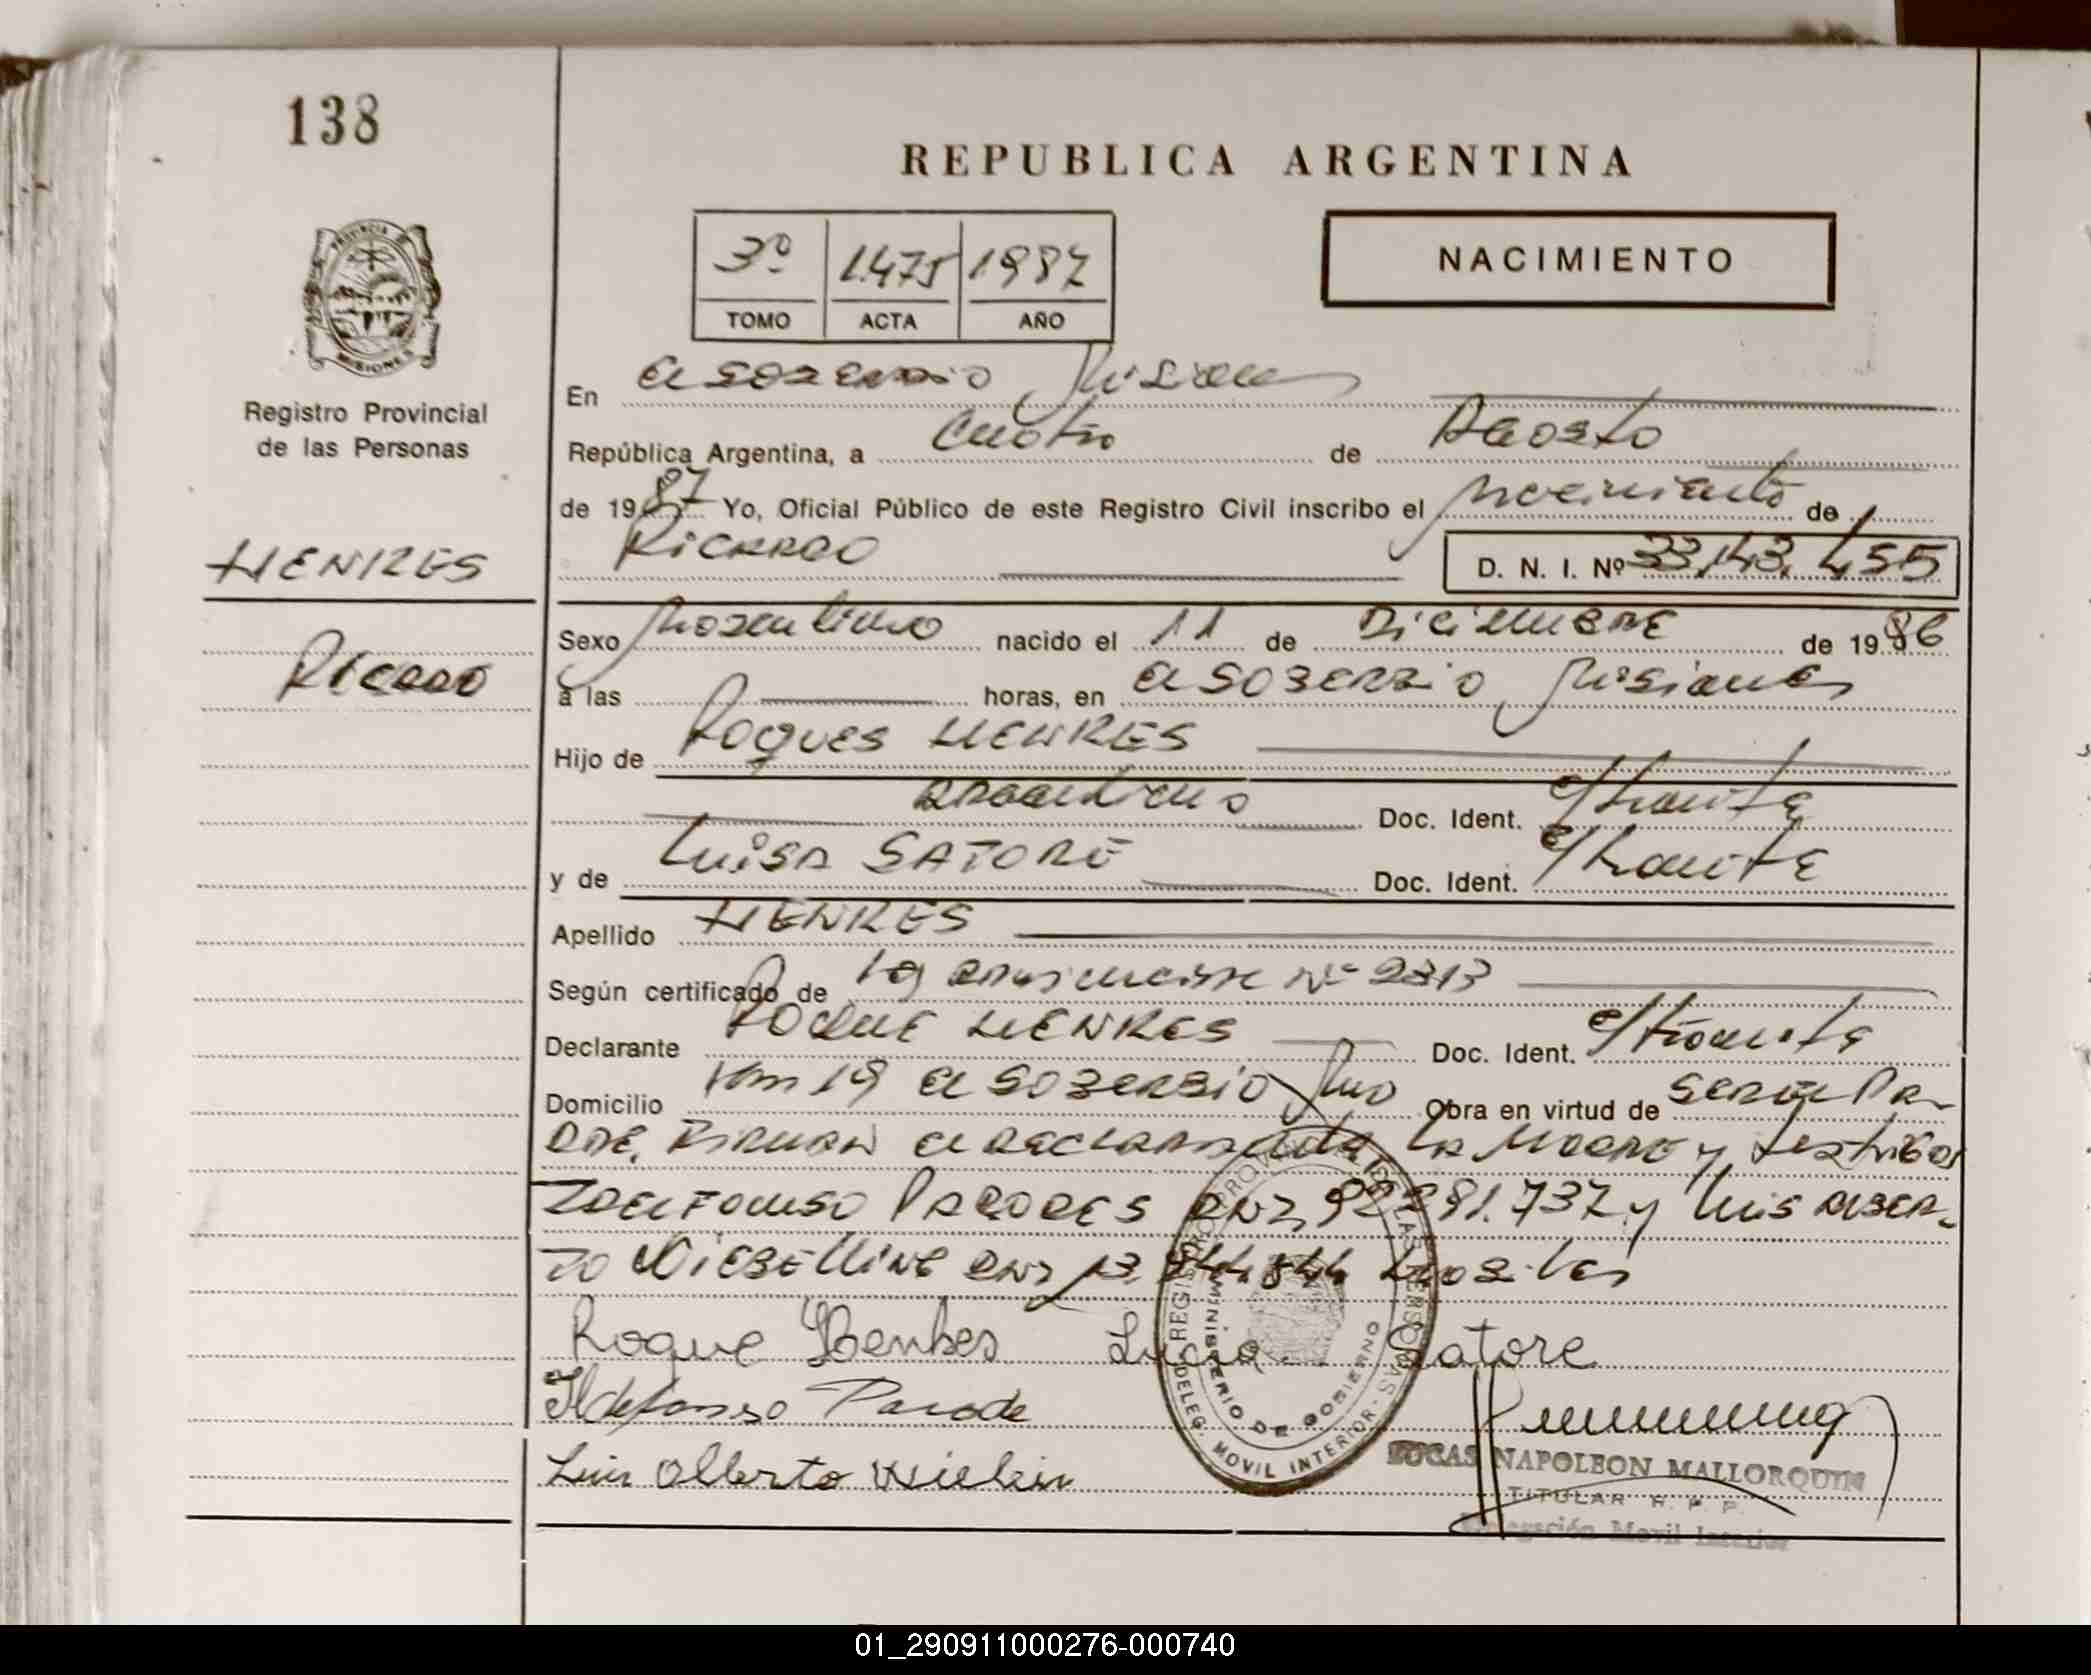 138
REPUBLICA ARGENTINA
3º 1475 1987
TOMO ACTA AÑO
NACIMIENTO
PROVINCIA DE MISIONES
Registro Provincial
de las Personas
En El Soberbio Misiones
República Argentina, a Cuatro de Agosto
de 1987 Yo, Oficial Público de este Registro Civil inscribo el Nacimiento de
HENKES
Ricardo
D. N. I. Nº 33.143.455
Sexo Masculino nacido el 11 de Diciembre de 1986
Ricardo
a las horas, en El Soberbio Misiones
Hijo de Roques HENKES
Argentino Doc. Ident. e/tramite
y de Luisa SATORE Doc. Ident. e/tramite
Apellido HENKES
Según certificado de Nº 2313
Declarante Roque HENKES Doc. Ident. e/tramite
Domicilio Km 19 El Soberbio Mnes Obra en virtud de ser el Pa-
dre. Firman el declarante, la Madre y testigos
Ildefonso PAREDES DNI 92.291.737 y Luis Alber-
to DNI 13.
Roque Henkes Lucia Satore
Ildefonso Parede
Luis Alberto
REGISTRO PROVINCIAL DE LAS PERSONAS - DELEG. MOVIL INTERIOR
MINISTERIO DE GOBIERNO
LUCAS NAPOLEON MALLORQUIN
TITULAR R. P. P.
Delegación Movil Interior
01_290911000276-000740